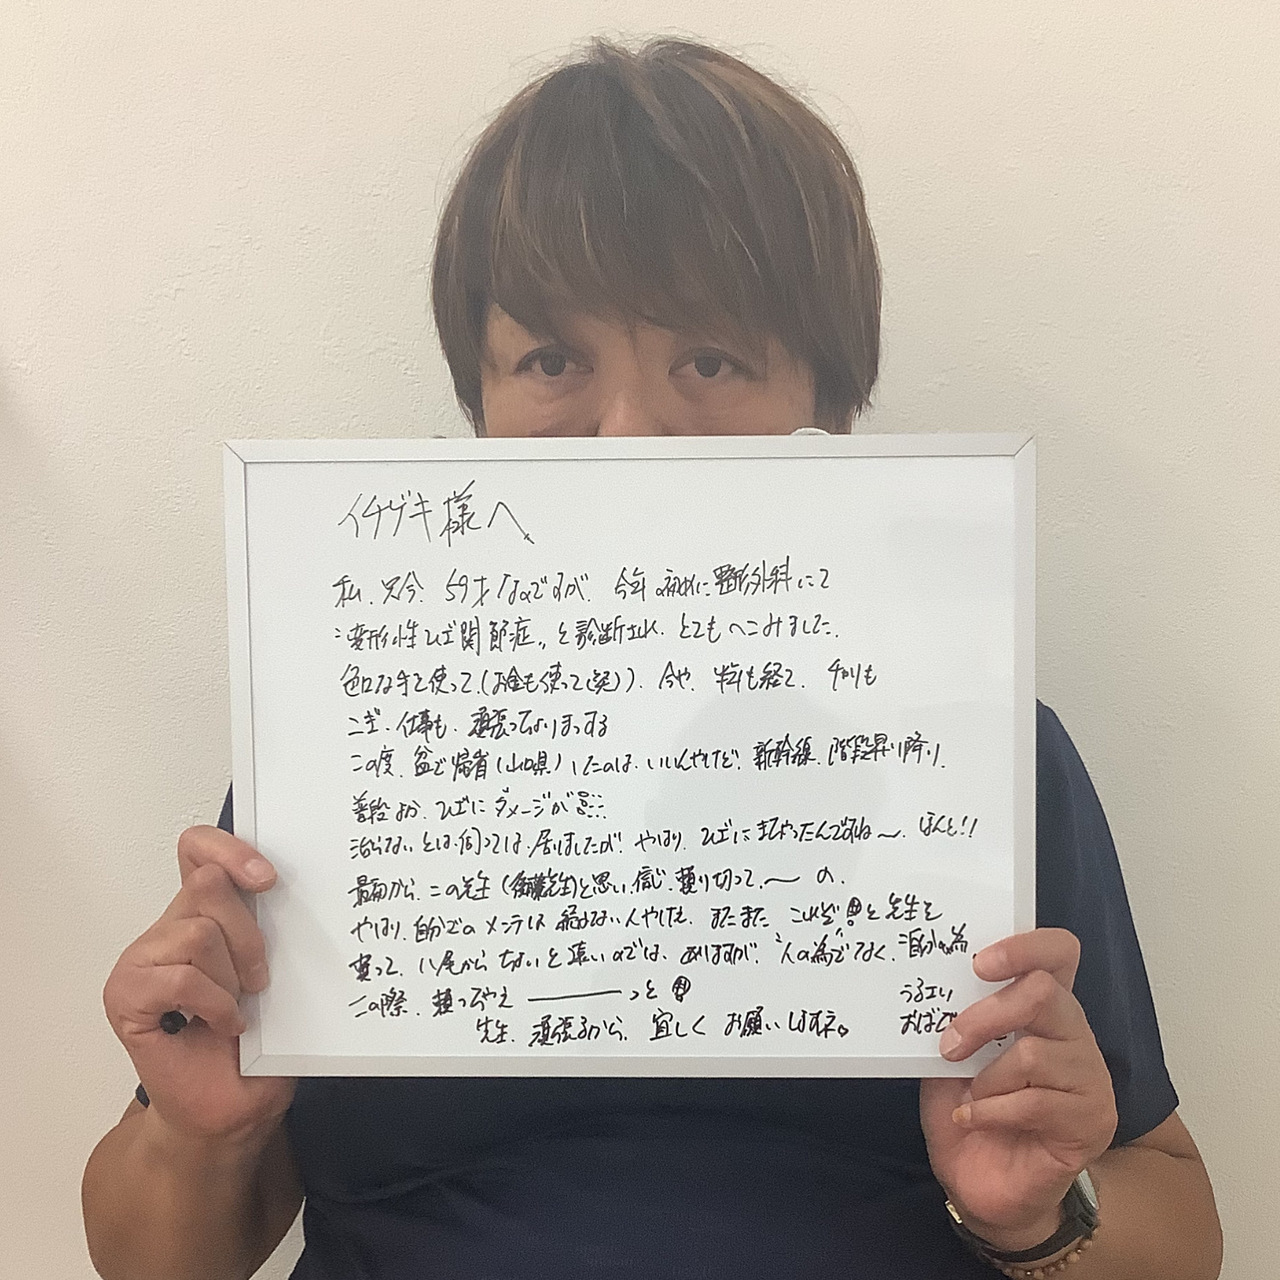 イチゲキ様へ、
私、只今、59才なのですが、今年初めに整形外科にて
"変形性ひざ関節症"と診断され、とてもへこみました。
色口な手を使って、(お金も使って(笑))、今や、半年も経て、チャリも
こぎ、仕事も、頑張っております
この度、盆で帰省(山口県)したのは、いいんやけど、新幹線、階段昇り降り、
普段よか、ひざにダメージが
治らないとは、伺っては、居りましたが、やはり、ひざにきちゃったんですね〜、ほんと!!
最初から、この先生と思い、信じ、頼り切って、〜の、
やはり、自分でのメンテは続かない人やけど、またまた、これぞ!と先生を
頼って、八尾からちょいと遠いのでは、ありますが、"人の為"でなく、"自分の為"
この際、頼っちゃえ―――っと!
うるエい
先生、頑張るから、宜しくお願いしますネ。 おばど